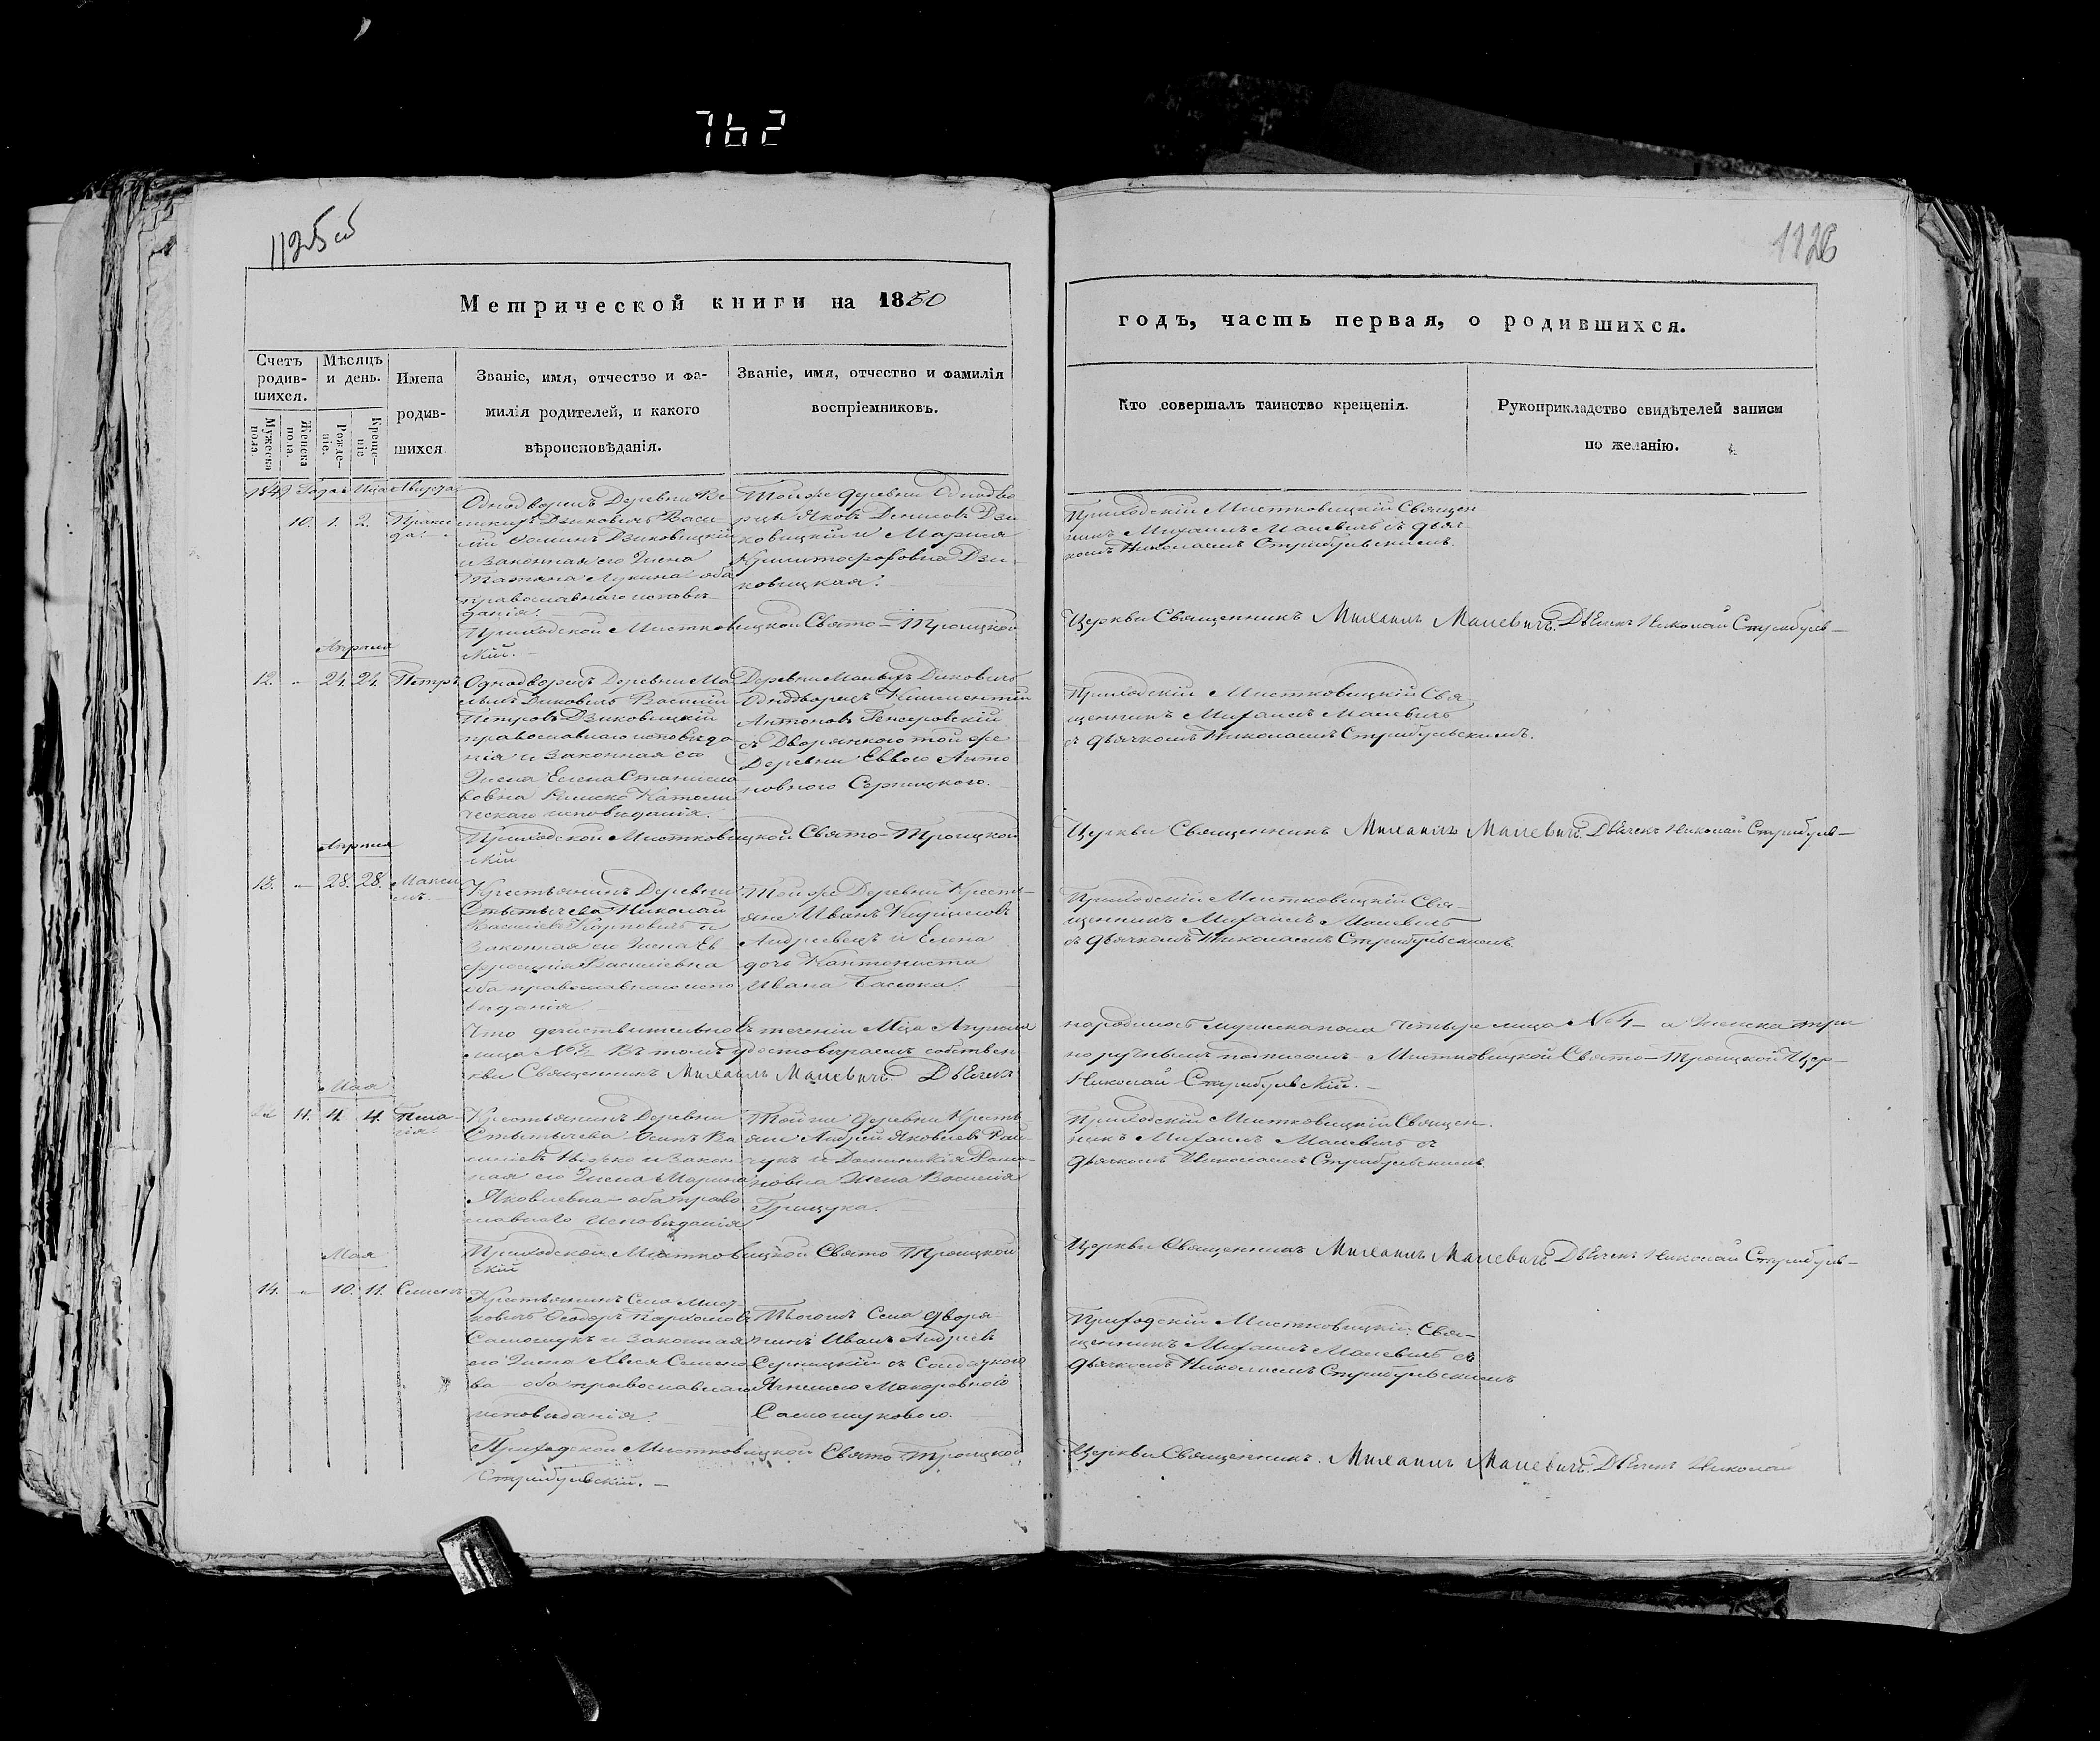 762
1125об
1126
Метрической книги на 1850
годъ, часть первая, о родившихся.
Счетъ родив-шихся.
Мѣсяцъ и день.
Имена
родив-
шихся
Званіе, имя, отчество и фа-
милія родителей, и какого
вѣроисповѣданія.
Званіе, имя, отчество и фамилія
воспріемниковъ.
Кто совершалъ таинство крещенія.
Рукоприкладство свидѣтелей записи
по желанію.
Мужеска пола.
Женска пола.
Рожде-ніе.
Креще-ніе
1849 Года Мца Августа
10. 1. 2. Пракси
да.
Однодворецъ Деревни Ве
ликихъ Диковичъ Васи-
лій Дзиковицкій
и Законная его Жена
Татьяна Лукина оба
православнаго исповѣ
данія.
Той же деревни Однодво
рцы Яковъ Денисовъ Дзи
ковицкій и Марися
Криштофоровна Дзи-
ковицкая.
Приходскій Мистковицкій Священ
никъ Михаилъ Малевичъ съ дьяч-
комъ Николаемъ Стрибульскимъ.
Приходской Мистковицкой Свято-Троицкой
Церкви Священникъ Михаилъ Малевичъ. Дьячек Николай Стрибуль-
скій.
Апреля
12. „ 24. 24. Петръ
Однодворецъ Деревни Ма
лыхъ Диковичъ Василій
Петровъ Дзиковицкій
православнаго исповѣда
нія и Законная его
Жена Елена Станисла
вовна Римско Католи
ческаго исповѣданія.
Деревни Малыхъ Диковичъ
Однодворецъ Климентій
Антоновъ
съ Дворянкою той же
Деревни Еввою Анто
новною Серницкою.
Приходскій Мистковицкій Свя-
щенникъ Михаилъ Малевичъ
съ дьячкомъ Николаемъ Стрибульскимъ.
Приходской Мистковицкой Свято-Троицкой
Церкви Священникъ Михаилъ Малевичъ. Дьячек Николай Стрибуль-
скій
Апреля
13. „ 28. 28. Макси
мъ.
Крестьянинъ Деревни
Стытычева Николай
Василіевъ Карповичъ и
Законная его Жена Ев
фросинія Василіевна
оба православнаго испо
вѣданія.
Той же Деревни Кресть-
яне Иванъ Кириловъ
Андреевецъ и Елена
дочь Кантониста
Ивана Басюка.
Приходскій Мистковицкій Свя-
щенникъ Михаилъ Малевичъ
съ дьячкомъ Николаемъ Стрибульскимъ.
Что действительно въ теченіи Мца Апреля
народилось мужеска пола четыре лица №4 - а Женска три
лица № 3. Въ томъ удостовѣряемъ собствен-
но ручнымъ подписомъ Мистковицкой Свято-Троицкой Цер-
кви Священникъ Михаилъ Малевичъ. Дьячек
Николай Стрибульскій.
Мая
11. 4. 4. Пела-
гія.
Крестьянинъ Деревни
Стытычева Осипъ Ва
силіевъ и Закон
ная его Жена Марина
Яковлевна - оба право
славнаго исповѣданія
Той же деревни Кресть
яне Андрей Яковлевъ Рай
чукъ и Доминикія Рома-
новна Жена Василія
Грицука.
Приходскій Мистковицкій Священ-
никъ Михаилъ Малевичъ съ
дьячкомъ Николаемъ Стрибульскимъ.
Приходской Мистковицкой Свято Троицкой
Церкви Священникъ Михаилъ Малевичъ Дьячек Николай Стрибуль-
скій
Мая
14. „ 10. 11. Семенъ
Крестьянинъ Села Мист-
ковичъ Ѳеодоръ Пархомовъ
Самошукъ и Законная
его Жена Хвеся Семено
ва - оба православнаго
исповѣданія.
Тогожъ Села дворя-
нинъ Иванъ Андреевъ
Серницкій съ Солдаткою
Агнешею Макаровною
Самошуковою.
Приходскій Мистковицкій Свя-
щенникъ Михаилъ Малевичъ съ
дьячкомъ Николаемъ Стрибульскимъ
Приходской Мистковицкой Свято Троицкой
Церкви Священникъ. Михаилъ Малевичъ. Дьячек Николай
Стрибульскій.